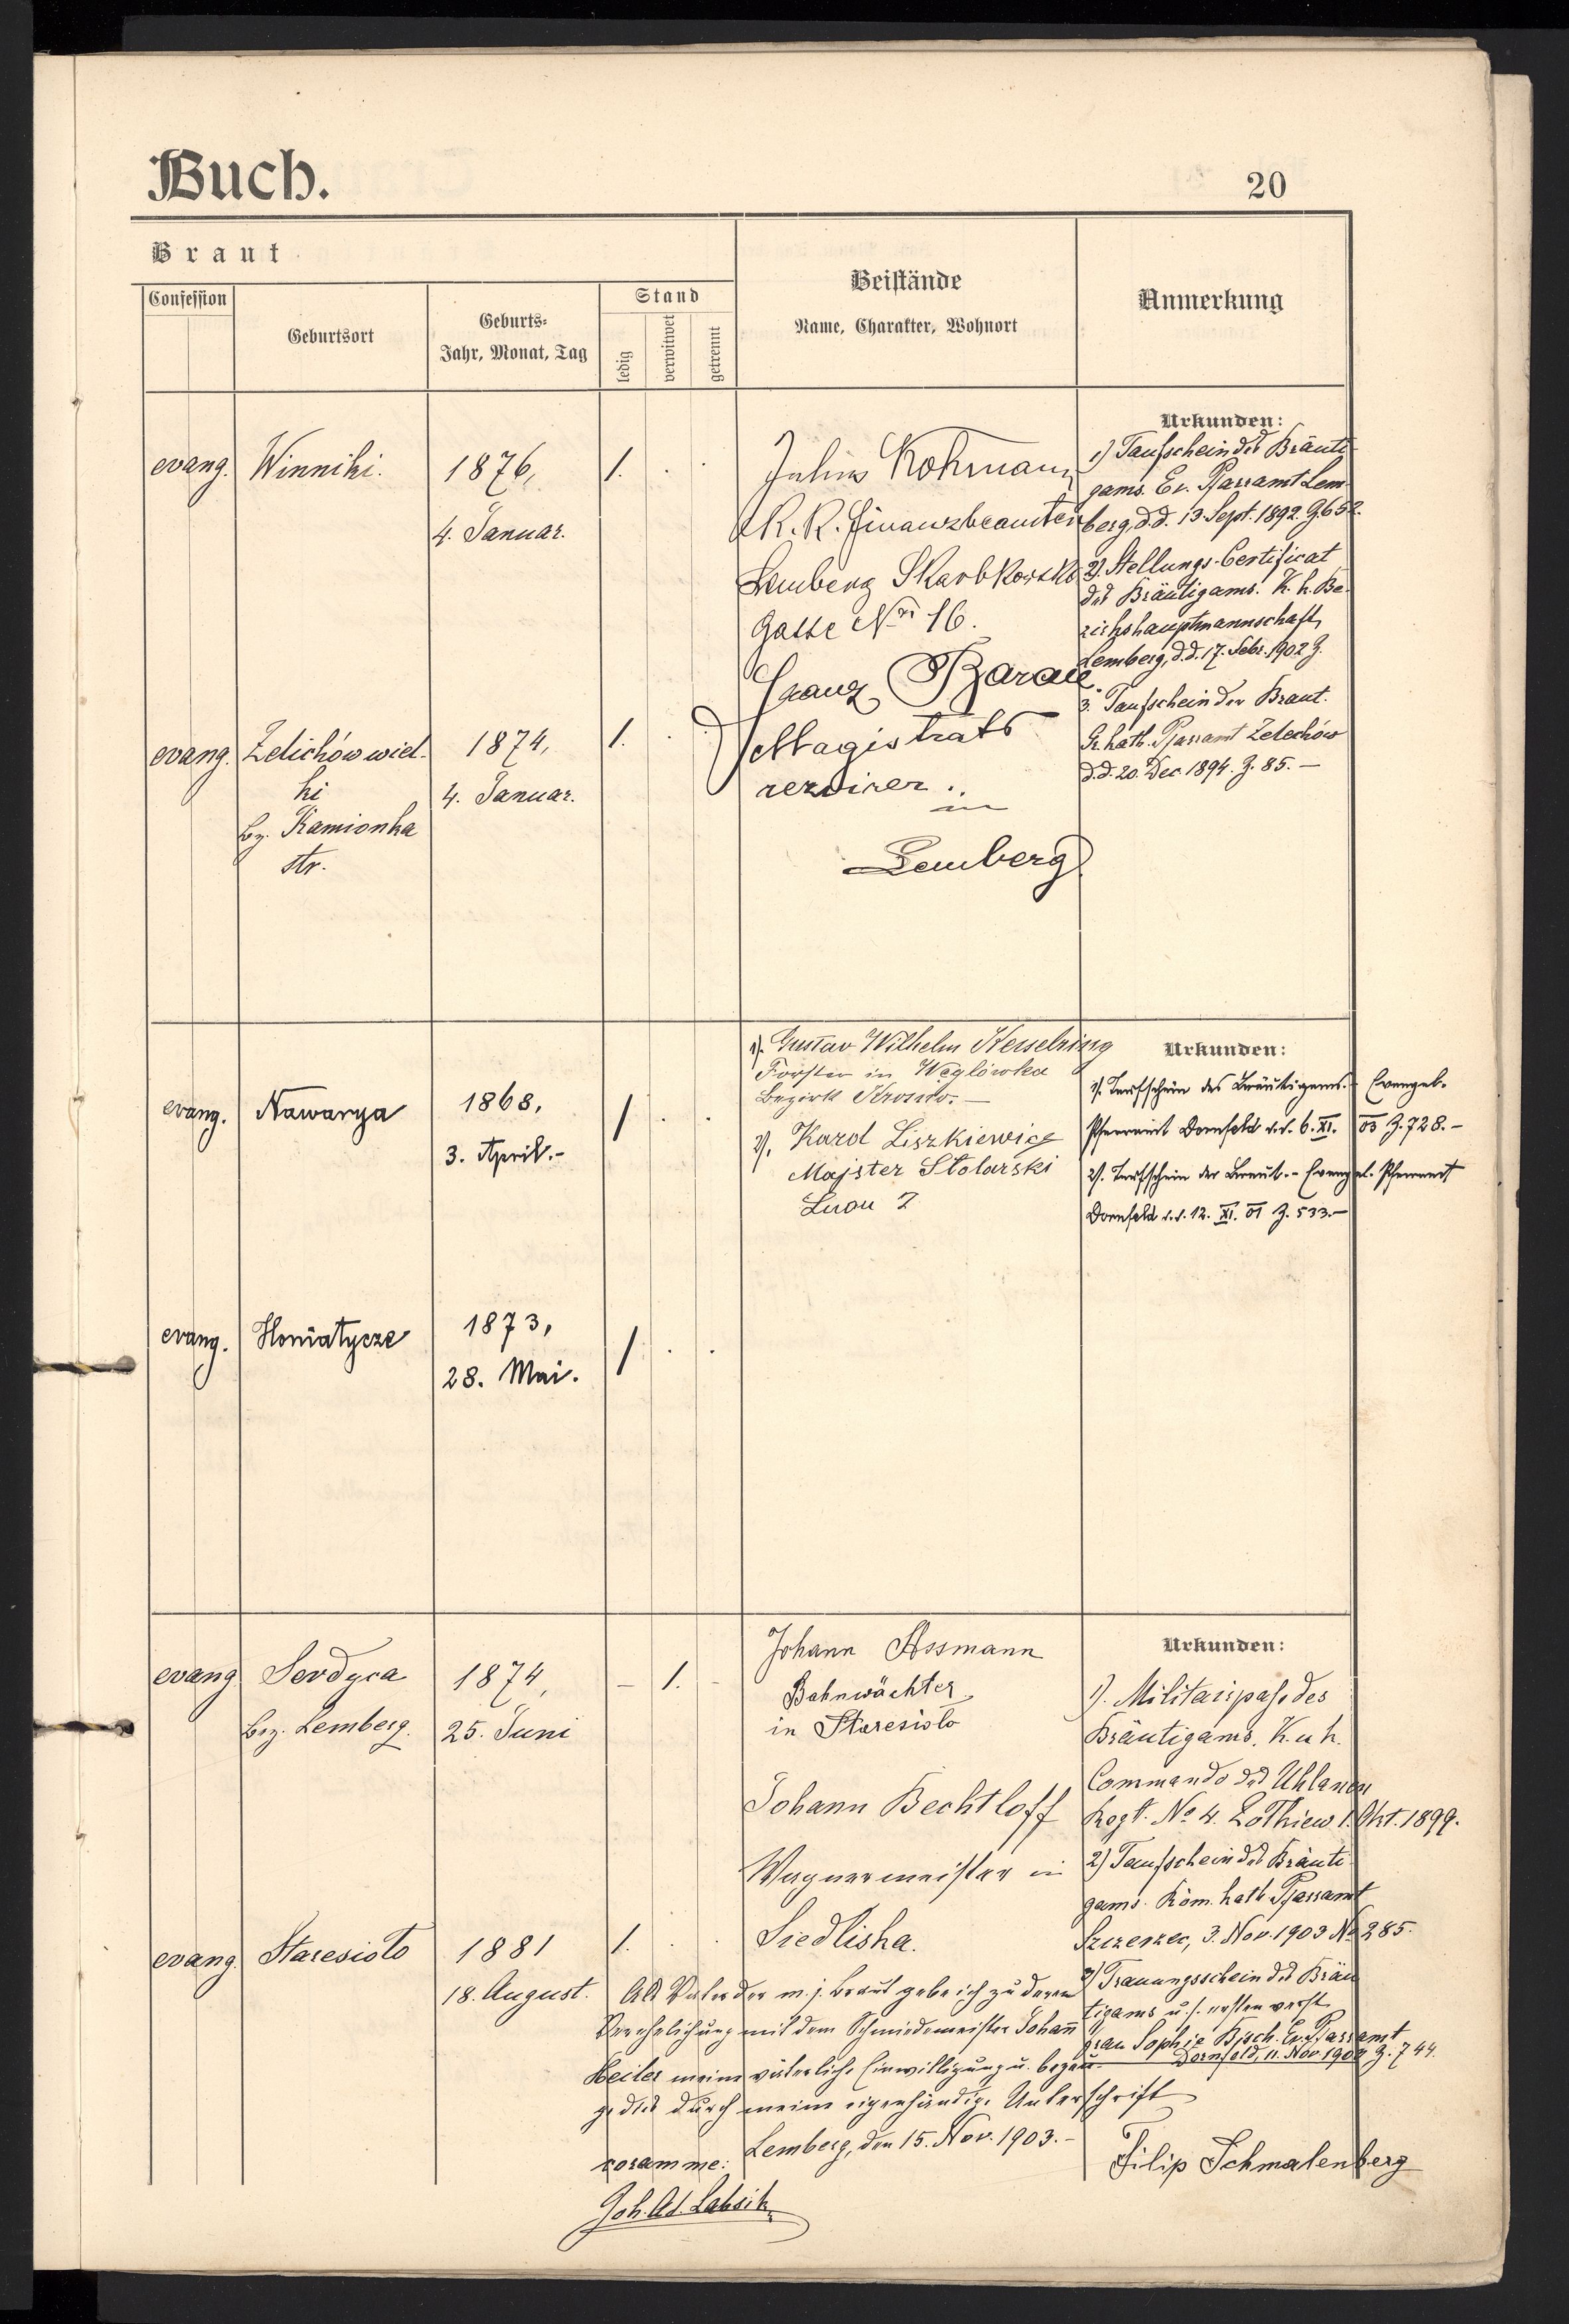 Buch.
20
Braut
Confession
Geburtsort
Geburts-
Jahr, Monat, Tag
Stand
ledig
verwitwet
getrennt
Beistände
Name, Charakter, Wohnort
Anmerkung
evang.
Winniki.
1876,
4. Januar.
1.
Julius Kohmann
K. K. Finanzbeamter
Lemberg Skarbkowska
Gasse Nro 16.
Franz
Magistrats
revisor
in
Lemberg
Urkunden:
1) Taufschein des Bräuti-
gams. Ev. Pfarramt Lem-
berg, d.d. 13 Sept. 1892. Z. 652.
2) Stellungs-Certificat
des Bräutigams. K. k. Be-
zirkshauptmannschaft,
Lemberg, d.d. 17. Febr. 1902 Z.
3. Taufschein der Braut.
Gr. kath. Pfarramt Zelechów
d.d. 20. Dec 1894. Z. 85. –
evang.
Zelichów wiel-
ki
bz. Kamionka
str.
1874,
4. Januar.
1.
evang.
Nawarya
1868,
3. April.-
1
1). Gustav Wilhelm Kesselring
Förster in Węglówka
Bezirk Krosno. –
2). Karol Liszkiewicz
Majster Stolarski
Urkunden:
1). Taufschein des Bräutigams. - Evangel.
Pfarramt Dornfeld d.d. 6. XI. 03 Z. 728. -
2). Taufschein der Braut. - Evangel. Pfarramt
Dornfeld d.d. 12. XI. 01 Z. 533.-
evang.
Honiatycze
1873,
28. Mai.
1
evang.
Serdyca
bez. Lemberg.
1874,
25. Juni
– 1. –
Johann Assmann
Bahnwächter
in Staresioło
Johann Bechtloff
Wagnermeister in
Siedliska.
Urkunden:
1). Militairpass des
Bräutigams. K. u k.
Commando des Uhlanen
Regt. No 4. Zołkiew 1. Okt. 1899.
2) Taufschein des Bräuti-
gams. Röm. kath Pfarramt
Szczerzec, 3. Nov. 1903 No 285.
3) Trauungsschein des Bräu
tigams u. s. ersten verst.
Frau Sophie Ev. Pfarramt
Dornfeld, 11. Nov. 1903 Z. 744.
evang.
Staresioło
1881
18. August.
1.
Als Vater der m. j. Braut gebe ich zu deren
Verehelichung mit dem Schmiedemeister Johann
Heiler meine väterliche Einwilligung u. bezeu-
ge dies durch meine eigenhändige Unterschrift
Lemberg, den 15. Nov. 1903. –
Filip Schmalenberg
coram me:
Joh. Ad.